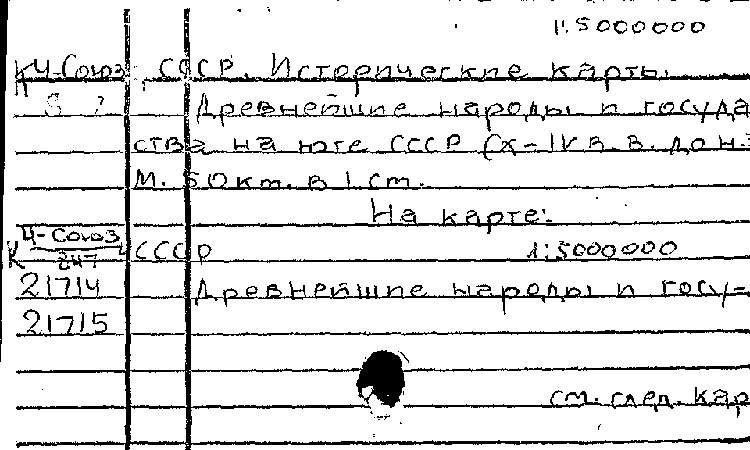 1:5000000
К4-Союз СССР. Исторические карты.
Древнейшие народы и госуда
ства на юге СССР (X-IV в.в. до н.э
М. 50км. в 1 см.
На карте:
К 4-Союз/247 СССР 1:5000000
21714 Древнейшие народы и госу-
21715
см. след. кар